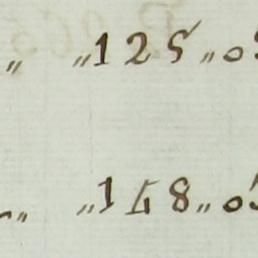 „ „125„0
„ „148„0